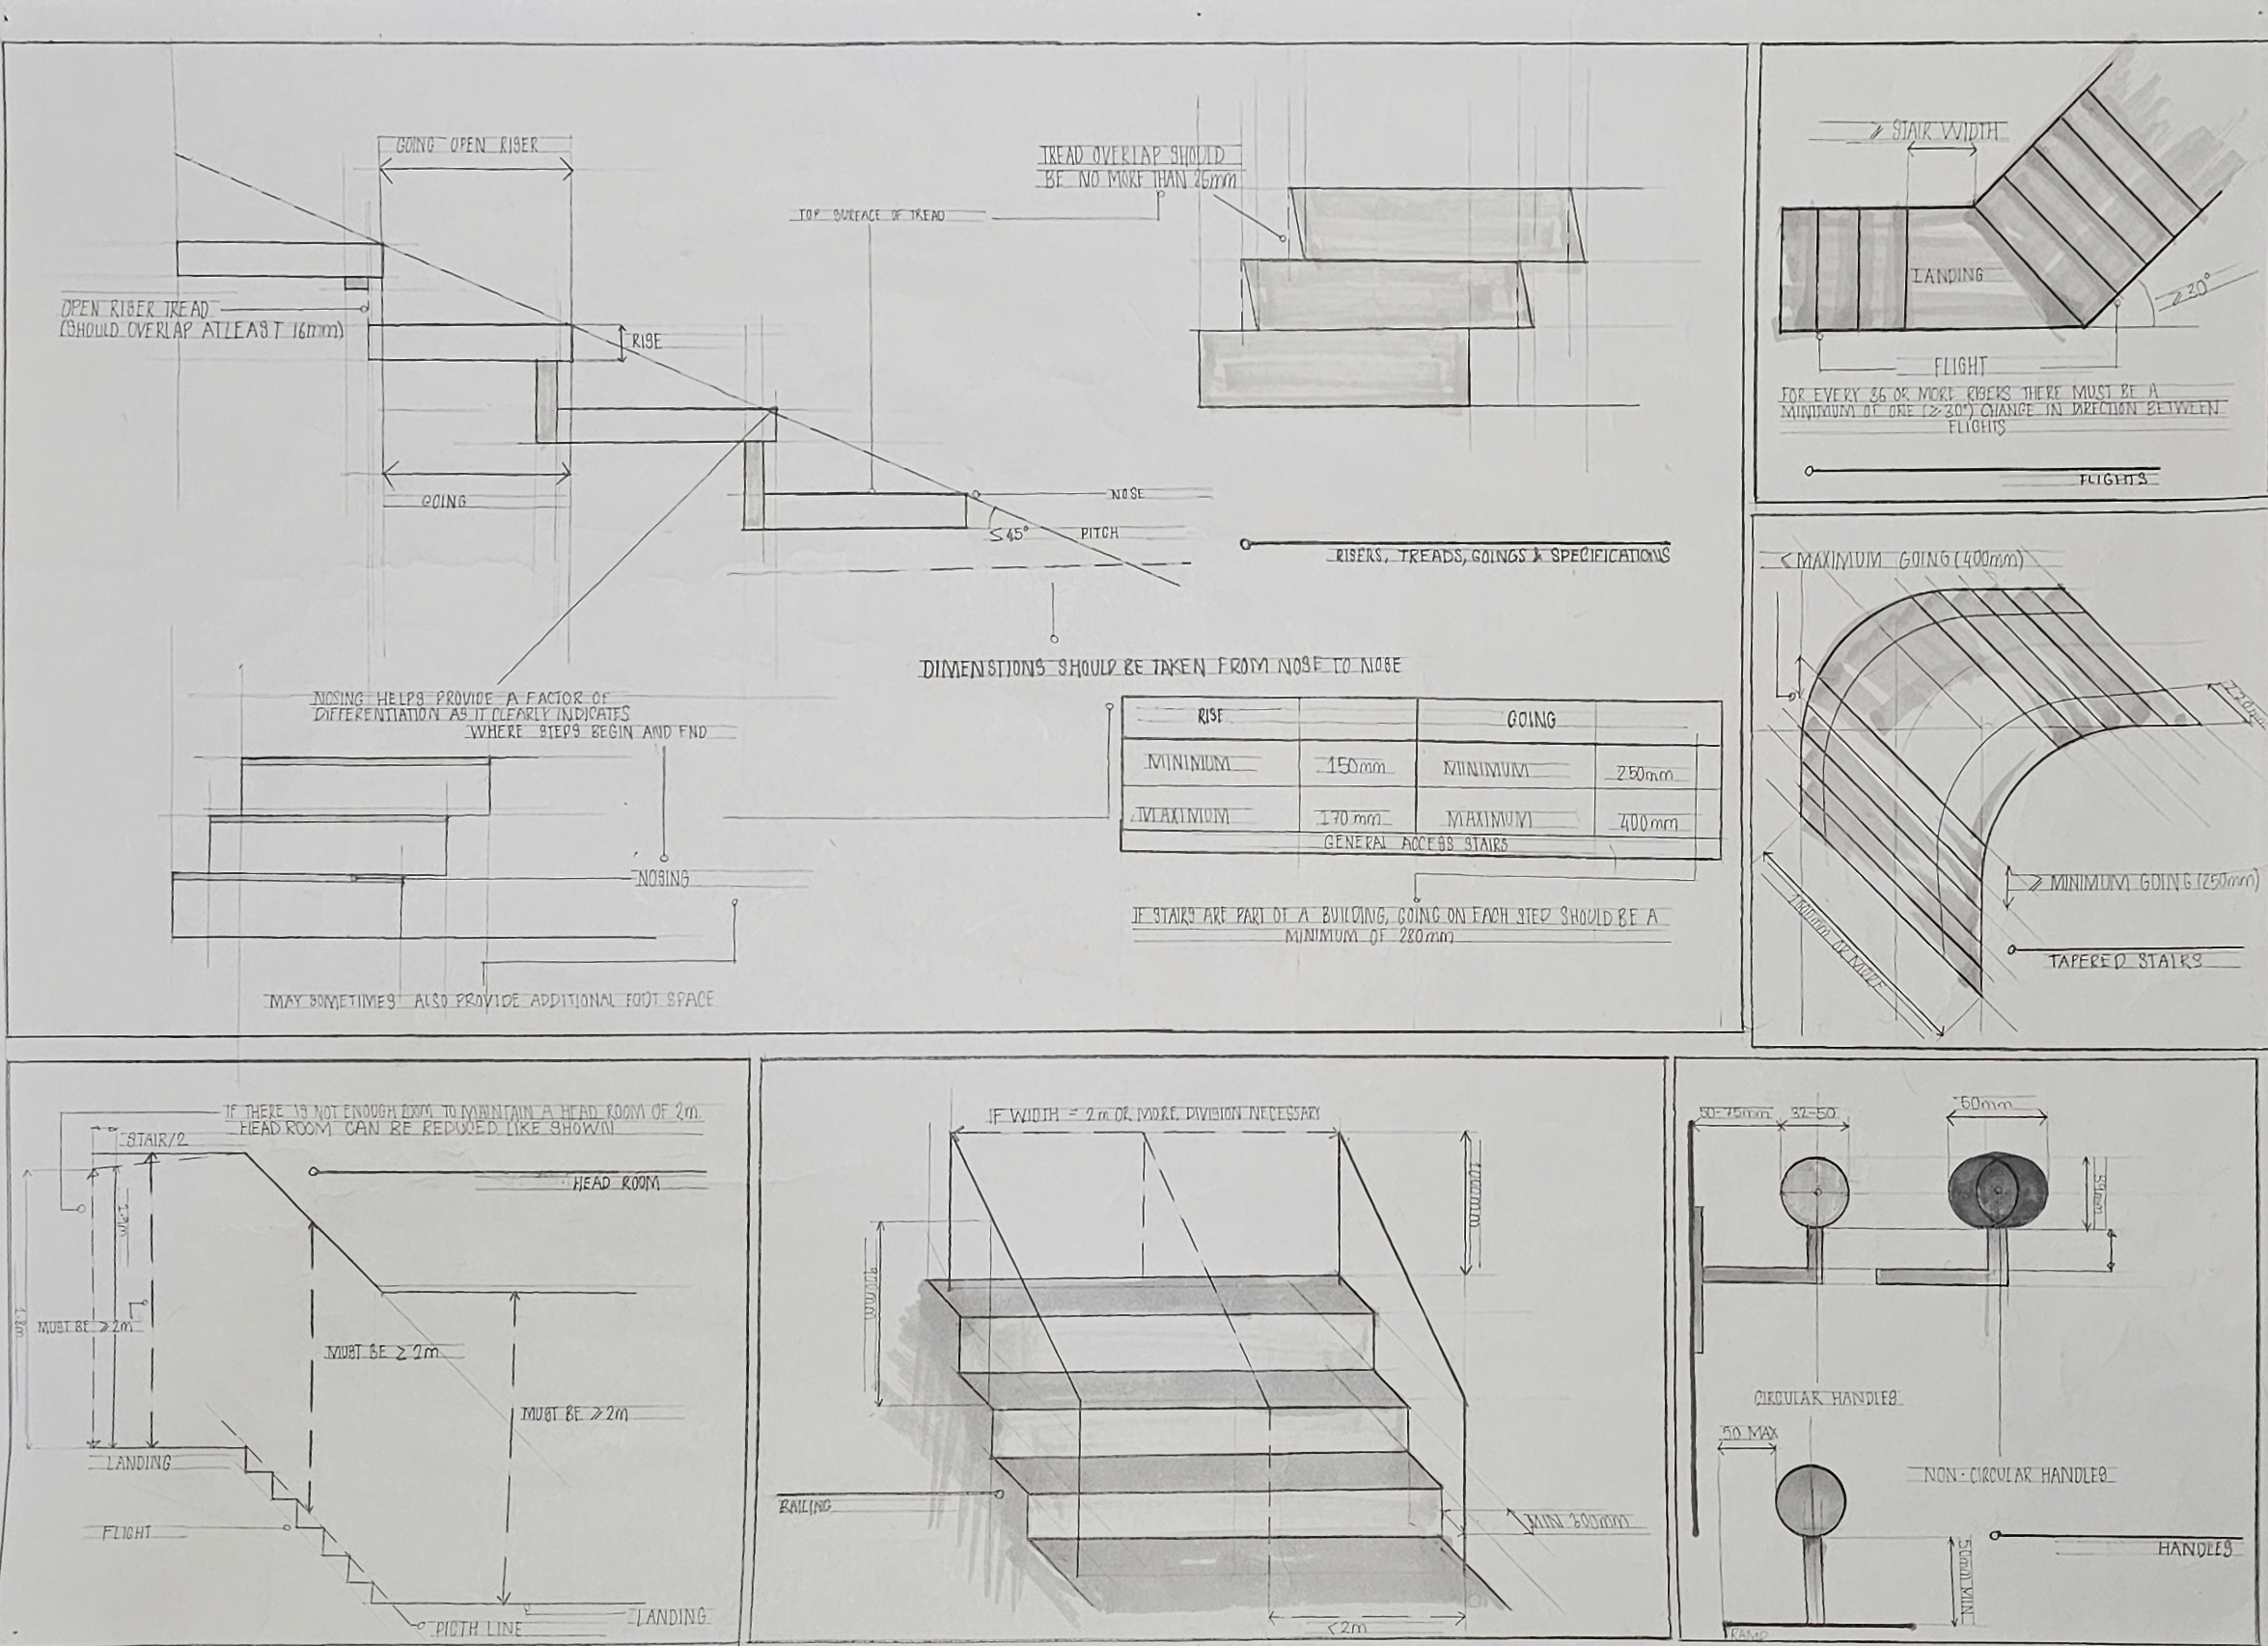 GOING OPEN RISER
TREAD OVERLAP SHOULD
BE NO MORE THAN 26mm
TOP SURFACE OF TREAD
OPEN RISER TREAD
(SHOULD OVERLAP ATLEAST 16mm)
RISE
GOING
NOSE
≤45°
PITCH
RISERS, TREADS, GOINGS & SPECIFICATIONS
DIMENSTIONS SHOULD BE TAKEN FROM NOSE TO NOSE
NOSING HELPS PROVIDE A FACTOR OF
DIFFERENTIATION AS IT CLEARLY INDICATES
WHERE STEPS BEGIN AND END
NOSING
MAY SOMETIMES ALSO PROVIDE ADDITIONAL FOOT SPACE
RISE GOING
MINIMUM 150mm MINIMUM 250mm
MAXIMUM 170mm MAXIMUM 400mm
GENERAL ACCESS STAIRS
IF STAIRS ARE PART OF A BUILDING, GOING ON EACH STEP SHOULD BE A
MINIMUM OF 280mm
⩾ STAIR WIDTH
LANDING
⩾30°
FLIGHT
FOR EVERY 36 OR MORE RISERS THERE MUST BE A
MINIMUM OF ONE (⩾30°) CHANGE IN DIRECTION BETWEEN
FLIGHTS
FLIGHTS
< MAXIMUM GOING (400mm)
⩾ MINIMUM GOING (250mm)
TAPERED STAIRS
IF THERE IS NOT ENOUGH ROOM TO MAINTAIN A HEAD ROOM OF 2m.
HEAD ROOM CAN BE REDUCED LIKE SHOWN
STAIR/2
HEAD ROOM
1.9m
1.8m
MUST BE ⩾2m
MUST BE ≥2m
MUST BE ⩾2m
LANDING
FLIGHT
PICTH LINE
LANDING
IF WIDTH = 2m OR MORE, DIVISION NECESSARY
1000mm
900mm
RAILING
MIN 300mm
<2m
50-75mm 32-50
50mm
39mm
CIRCULAR HANDLES
50 MAX
NON-CIRCULAR HANDLES
50mm MIN
HANDLES
RAMP